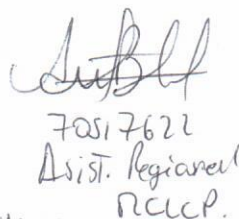 70517622
Asist. Regional
MCLCP.